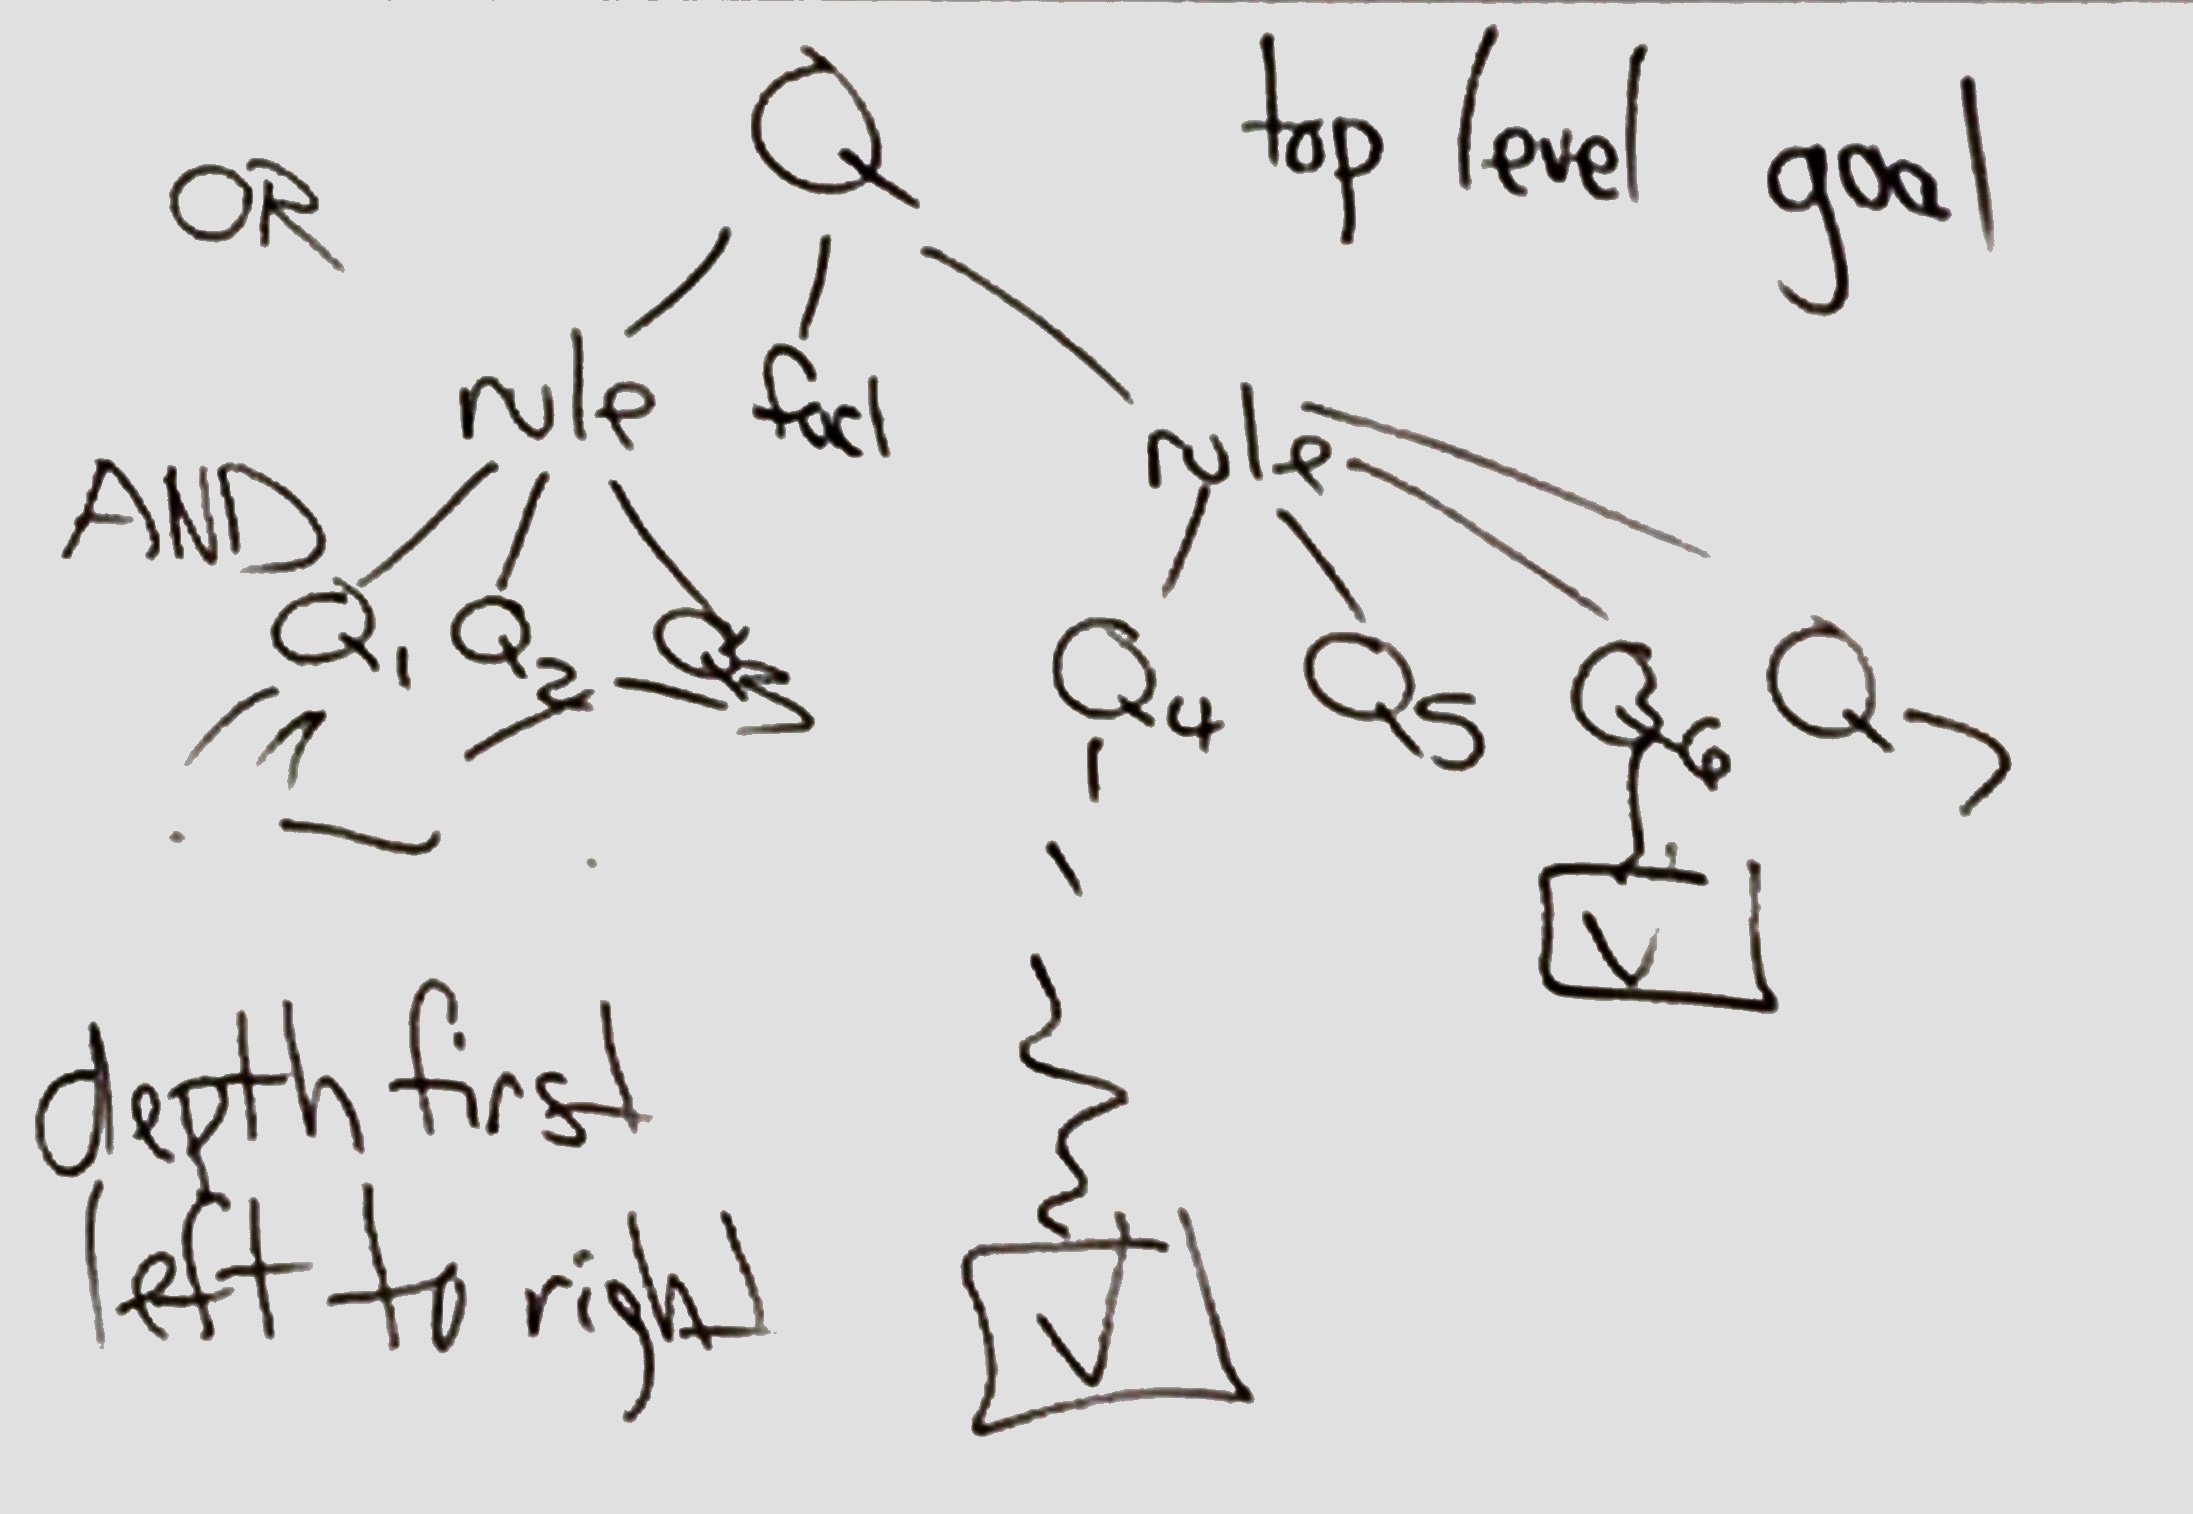 Q top level goal
OR
rule fact rule
AND
Q1 Q2 Q3 Q4 Q5 Q6 Q7
depth first
left to right